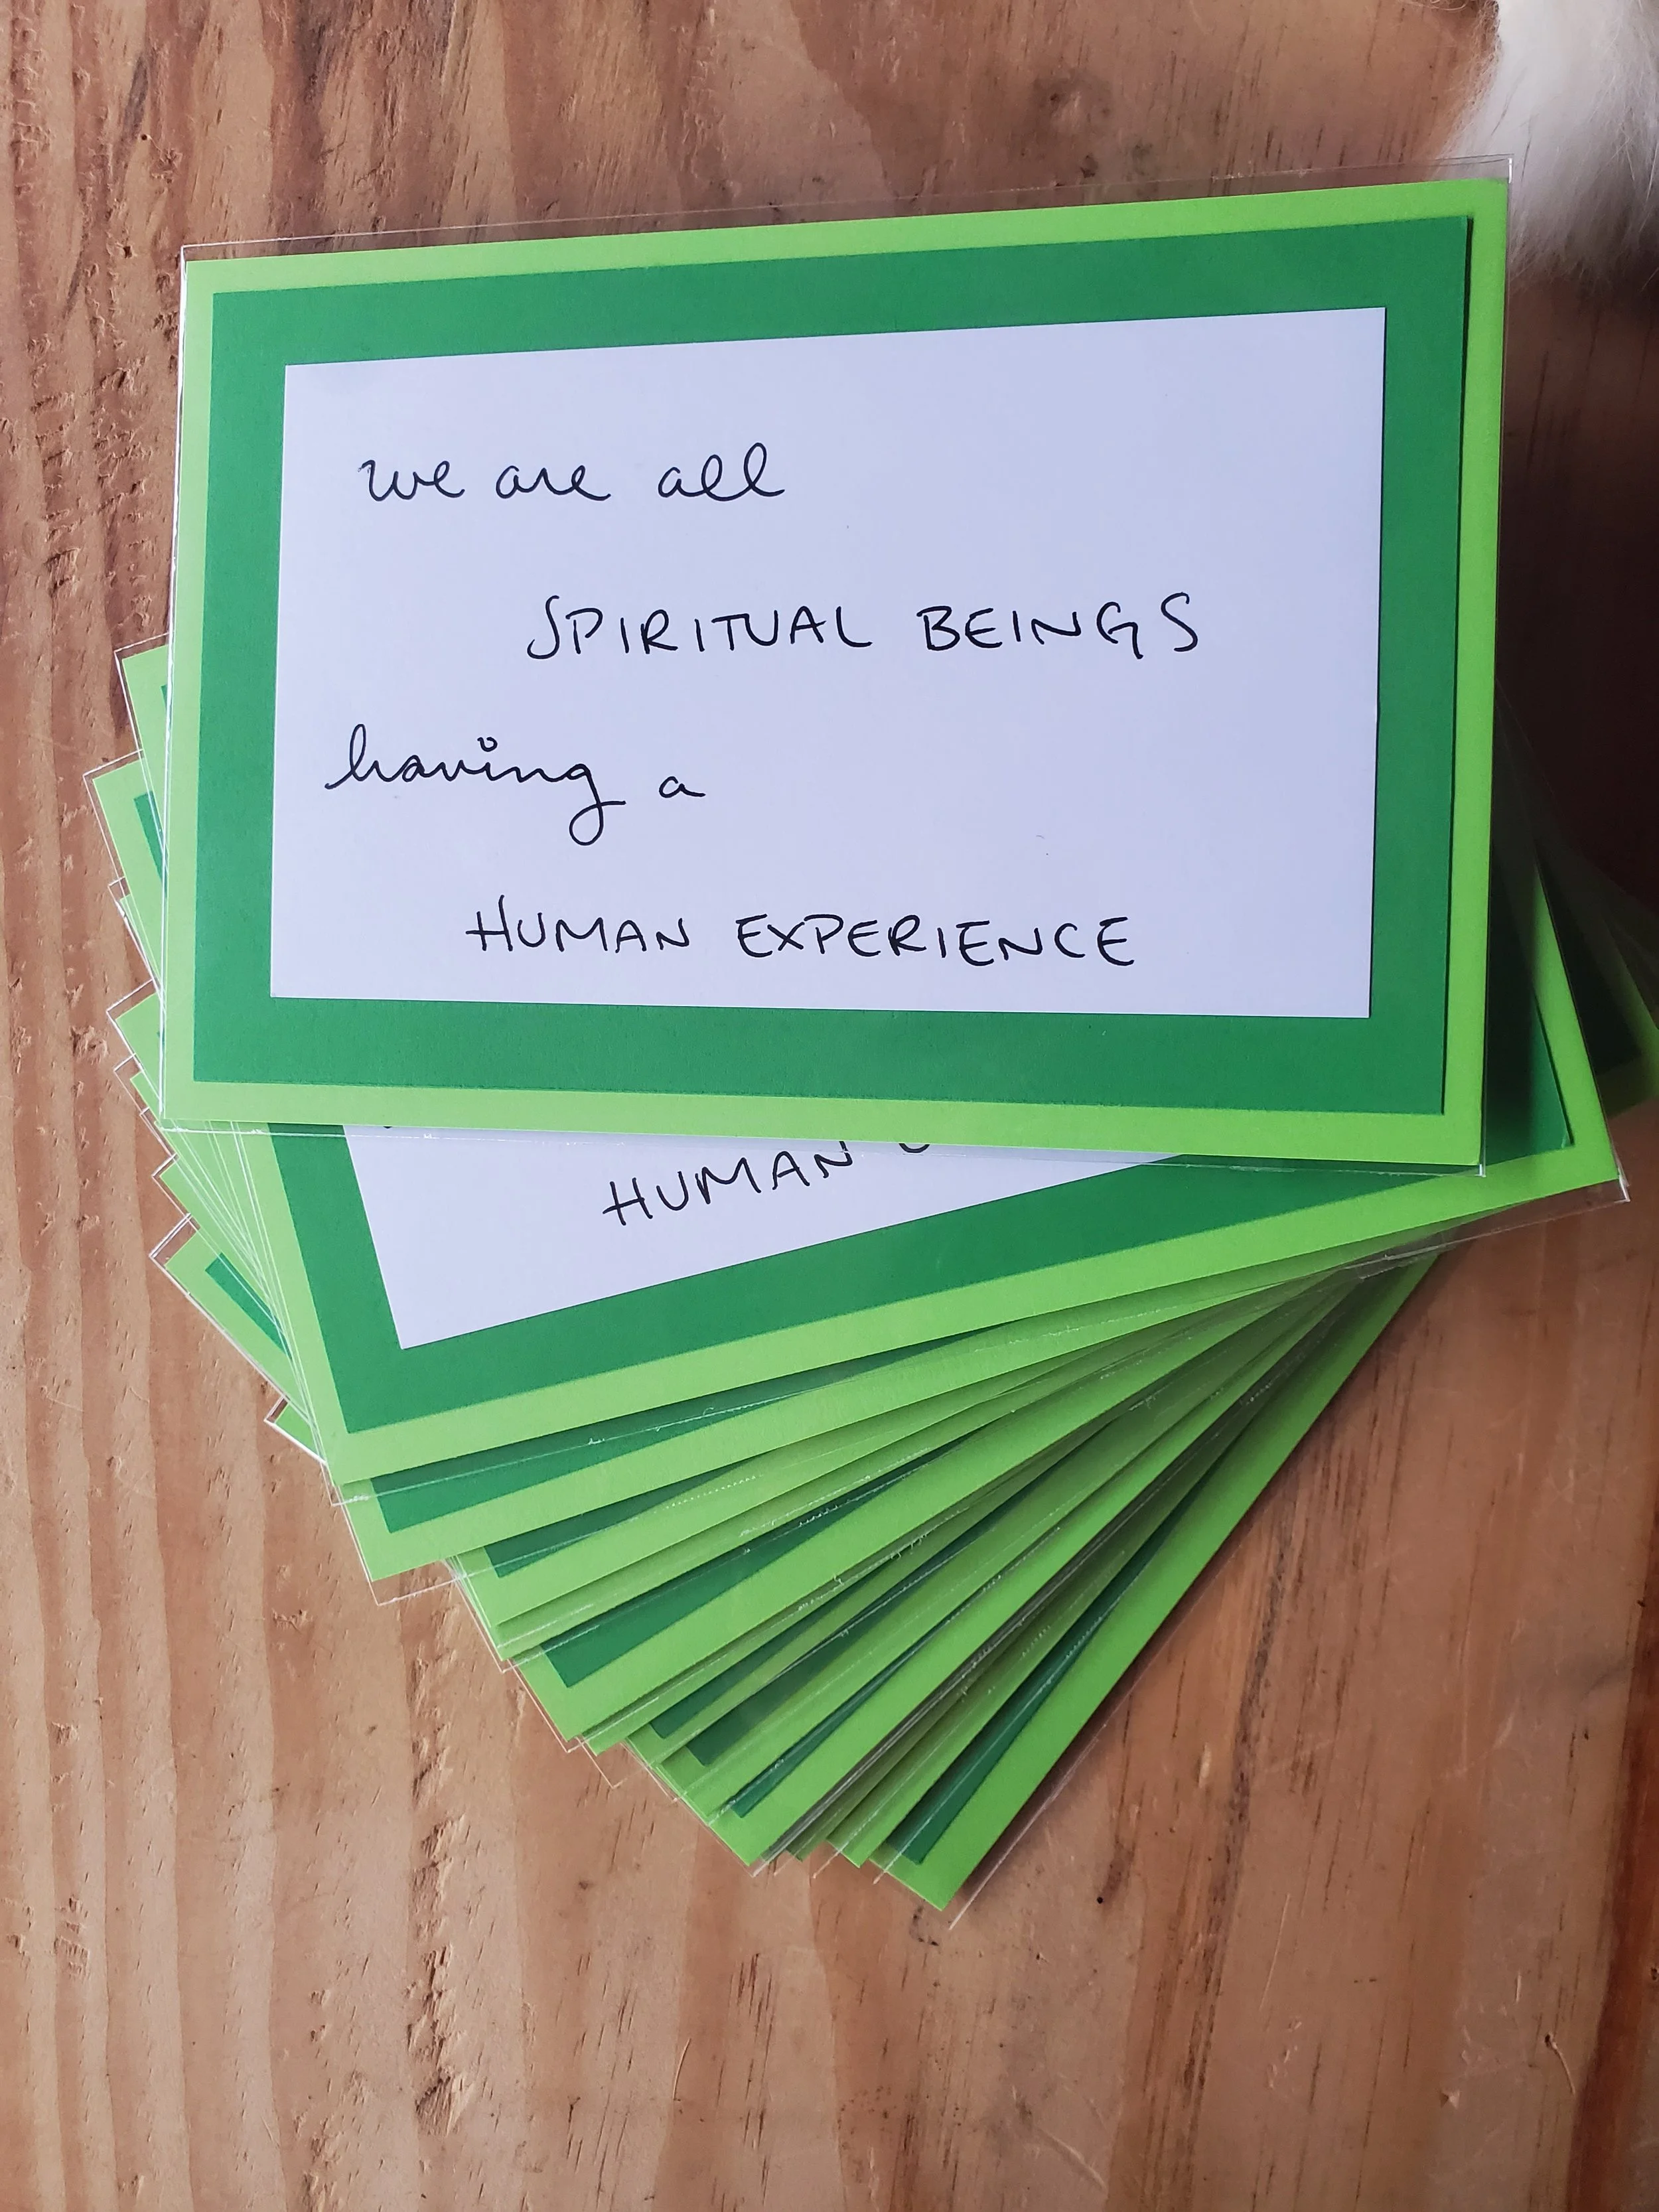 we are all
SPIRITUAL BEINGS
having a
HUMAN EXPERIENCE
HUMAN